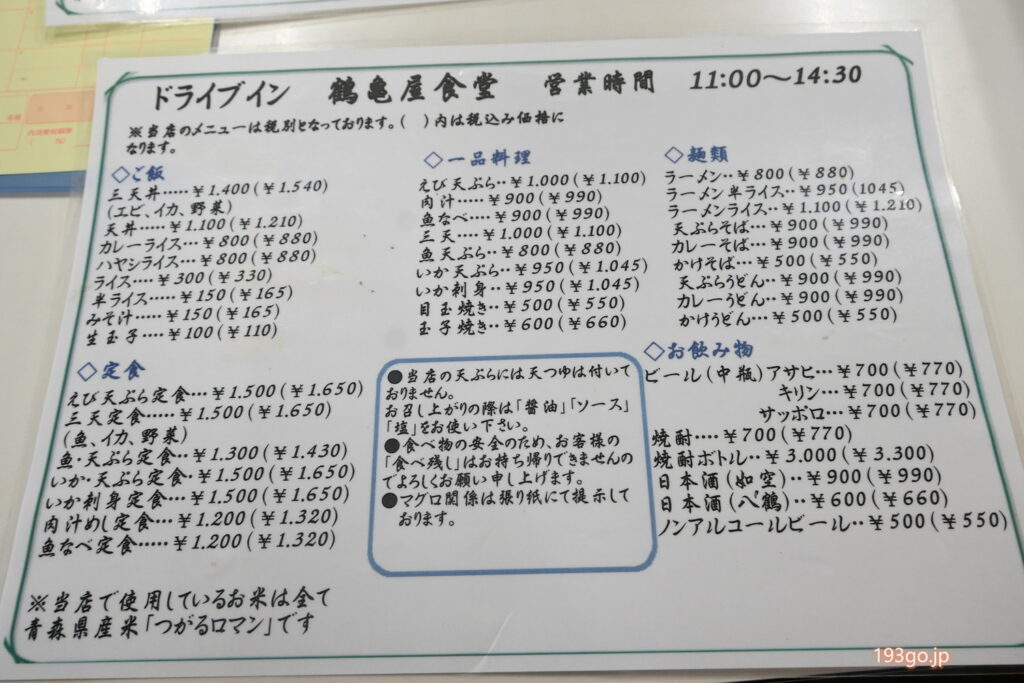 ドライブイン 鶴亀屋食堂 営業時間 11:00〜14:30
※当店のメニューは税別となっております。( )内は税込み価格に
なります。
◇ご飯
三天丼‥‥‥¥1.400(¥1.540)
(エビ、イカ、野菜)
天丼‥‥‥¥1.100(¥1.210)
カレーライス‥‥¥800(¥880)
ハヤシライス‥‥¥800(¥880)
ライス‥‥¥300(¥330)
半ライス‥‥‥¥150(¥165)
みそ汁‥‥‥¥150(¥165)
生玉子‥‥¥100(¥110)
◇定食
えび天ぷら定食‥‥¥1.500(¥1.650)
三天定食‥‥‥¥1.500(¥1.650)
(魚、イカ、野菜)
魚・天ぷら定食‥‥¥1.300(¥1.430)
いか・天ぷら定食‥¥1.500(¥1.650)
いか刺身定食‥‥¥1.500(¥1.650)
肉汁めし定食‥‥¥1.200(¥1.320)
魚なべ定食‥‥‥¥1.200(¥1.320)
※当店で使用しているお米は全て
青森県産米「つがるロマン」です
◇一品料理
えび天ぷら‥¥1.000(¥1.100)
肉汁‥‥‥¥900(¥990)
魚なべ‥‥¥900(¥990)
三天‥‥¥1.000(¥1.100)
魚天ぷら‥¥800(¥880)
いか天ぷら‥¥950(¥1.045)
いか刺身‥¥950(¥1.045)
目玉焼き‥¥500(¥550)
玉子焼き‥¥600(¥660)
●当店の天ぷらには天つゆは付いて
おりません。
お召し上がりの際は「醤油」「ソース」
「塩」をお使い下さい。
●食べ物の安全のため、お客様の
「食べ残し」はお持ち帰りできませんの
でよろしくお願い申し上げます。
●マグロ関係は張り紙にて提示して
おります。
◇麺類
ラーメン‥¥800(¥880)
ラーメン半ライス‥¥950(1045)
ラーメンライス‥¥1.100(¥1.210)
天ぷらそば‥¥900(¥990)
カレーそば‥¥900(¥990)
かけそば‥¥500(¥550)
天ぷらうどん‥¥900(¥990)
カレーうどん‥¥900(¥990)
かけうどん‥¥500(¥550)
◇お飲み物
ビール(中瓶)アサヒ‥¥700(¥770)
キリン‥¥700(¥770)
サッポロ‥¥700(¥770)
焼酎‥‥¥700(¥770)
焼酎ボトル‥¥3.000(¥3.300)
日本酒(如空)‥¥900(¥990)
日本酒(八鶴)‥¥600(¥660)
ノンアルコールビール‥¥500(¥550)
193go.jp